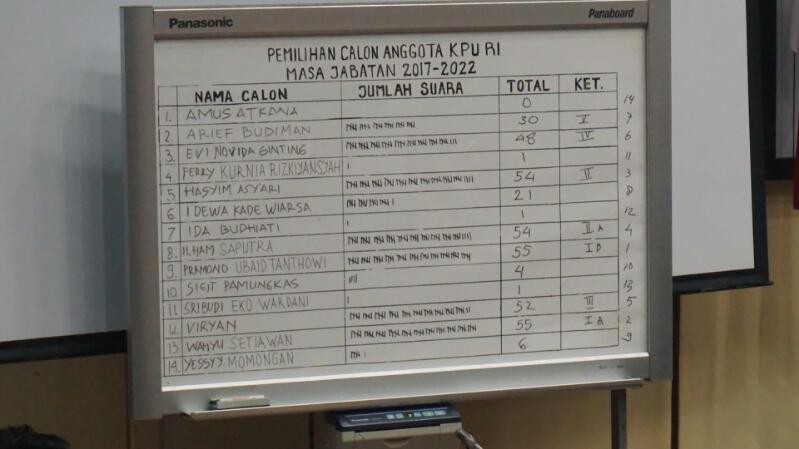 Panasonic Panaboard
PEMILIHAN CALON ANGGOTA KPU RI
MASA JABATAN 2017-2022
NAMA CALON JUMLAH SUARA TOTAL KET.
1. AMUS ATKANA 0 14
2 ARIEF BUDIMAN 30 V 7
3. EVI NOVIDA GINTING 48 IV 6
4 FERRY KURNIA RIZKIYANSYAH 1 11
5. HASYIM ASY'ARI 54 II 3
6 I DEWA KADE WIARSA 21 8
7 IDA BUDHIATI 1 12
8. ILHAM SAPUTRA 54 II A 4
9. PRAMONO UBAID TANTHOWI 55 I B 1
10 SIGIT PAMUNGKAS 4 10
11 SRI BUDI EKO WARDANI 1 13
12 VIRYAN 52 III 5
13 WAHYU SETIAWAN 55 I A 2
14. YESSY Y. MOMONGAN 6 9